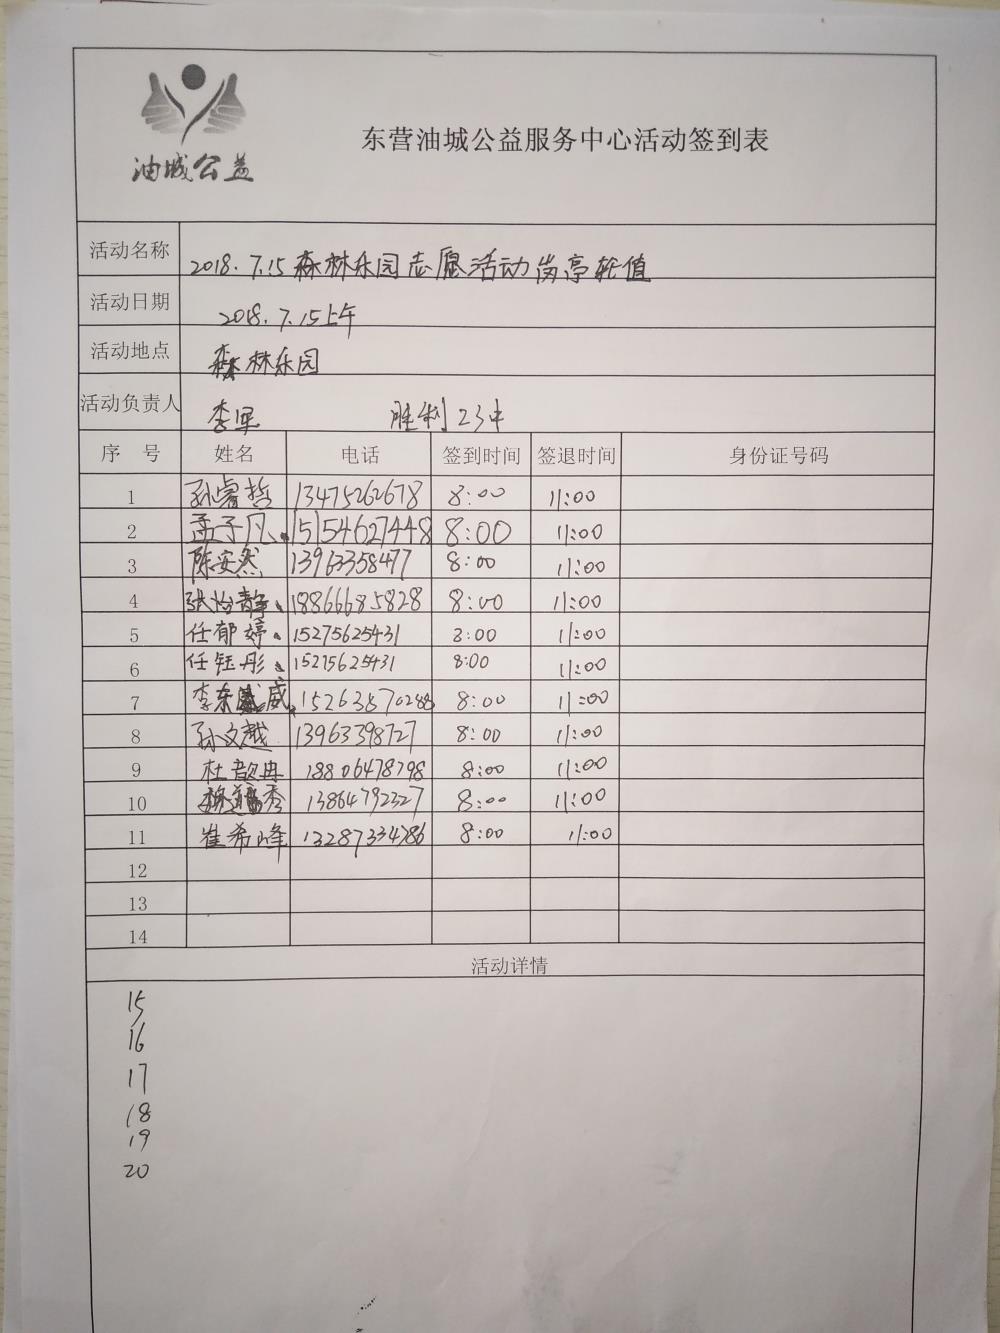 油城公益
东营油城公益服务中心活动签到表
活动名称 2018.7.15森林乐园志愿活动岗亭轮值
活动日期 2018.7.15上午
活动地点 森林乐园
活动负责人 李军 胜利23中
序 号 姓名 电话 签到时间 签退时间 身份证号码
1 孙睿哲 13475262678 8:00 11:00
2 孟子凡 15154627448 8:00 11:00
3 陈安然 13963358477 8:00 11:00
4 张怡静 18866685828 8:00 11:00
5 任郁婷 15275625431 8:00 11:00
6 任钰彤 15275625431 8:00 11:00
7 李东威 15263870288 8:00 11:00
8 孙文越 13963398727 8:00 11:00
9 杜歆冉 18806478798 8:00 11:00
10 秀 13864792327 8:00 11:00
11 崔希峰 13287334786 8:00 11:00
12
13
14
活动详情
15
16
17
18
19
20